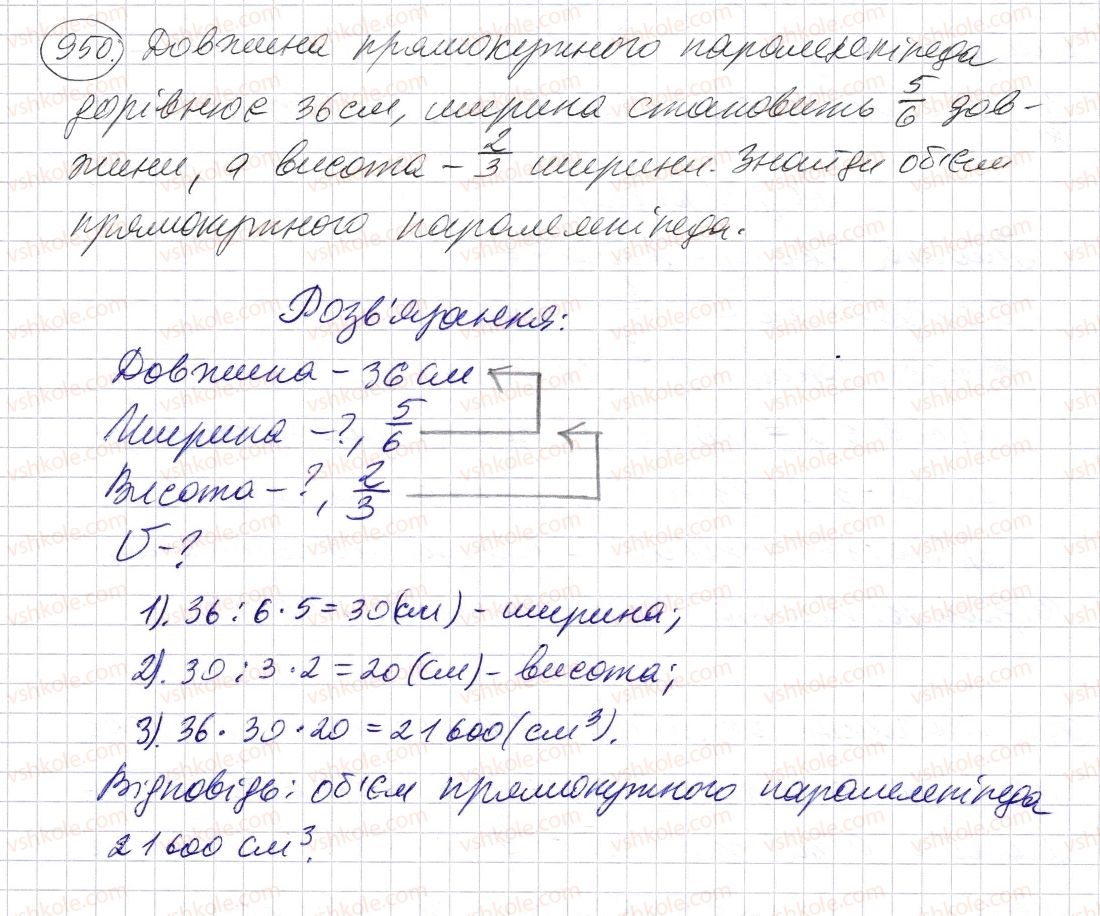 950. Довжина прямокутного паралелепіпеда
дорівнює 36 см, ширина становить 5/6 дов-
жини, а висота – 2/3 ширини. Знайди об'єм
прямокутного паралелепіпеда.
Розв'язання:
Довжина – 36 см
Ширина – ?, 5/6
Висота – ?, 2/3
V – ?
1). 36 : 6 · 5 = 30 (см) – ширина;
2). 30 : 3 · 2 = 20 (см) – висота;
3). 36 · 30 · 20 = 21 600 (см³).
Відповідь: об'єм прямокутного паралелепіпеда
21 600 см³.
vshkole.com